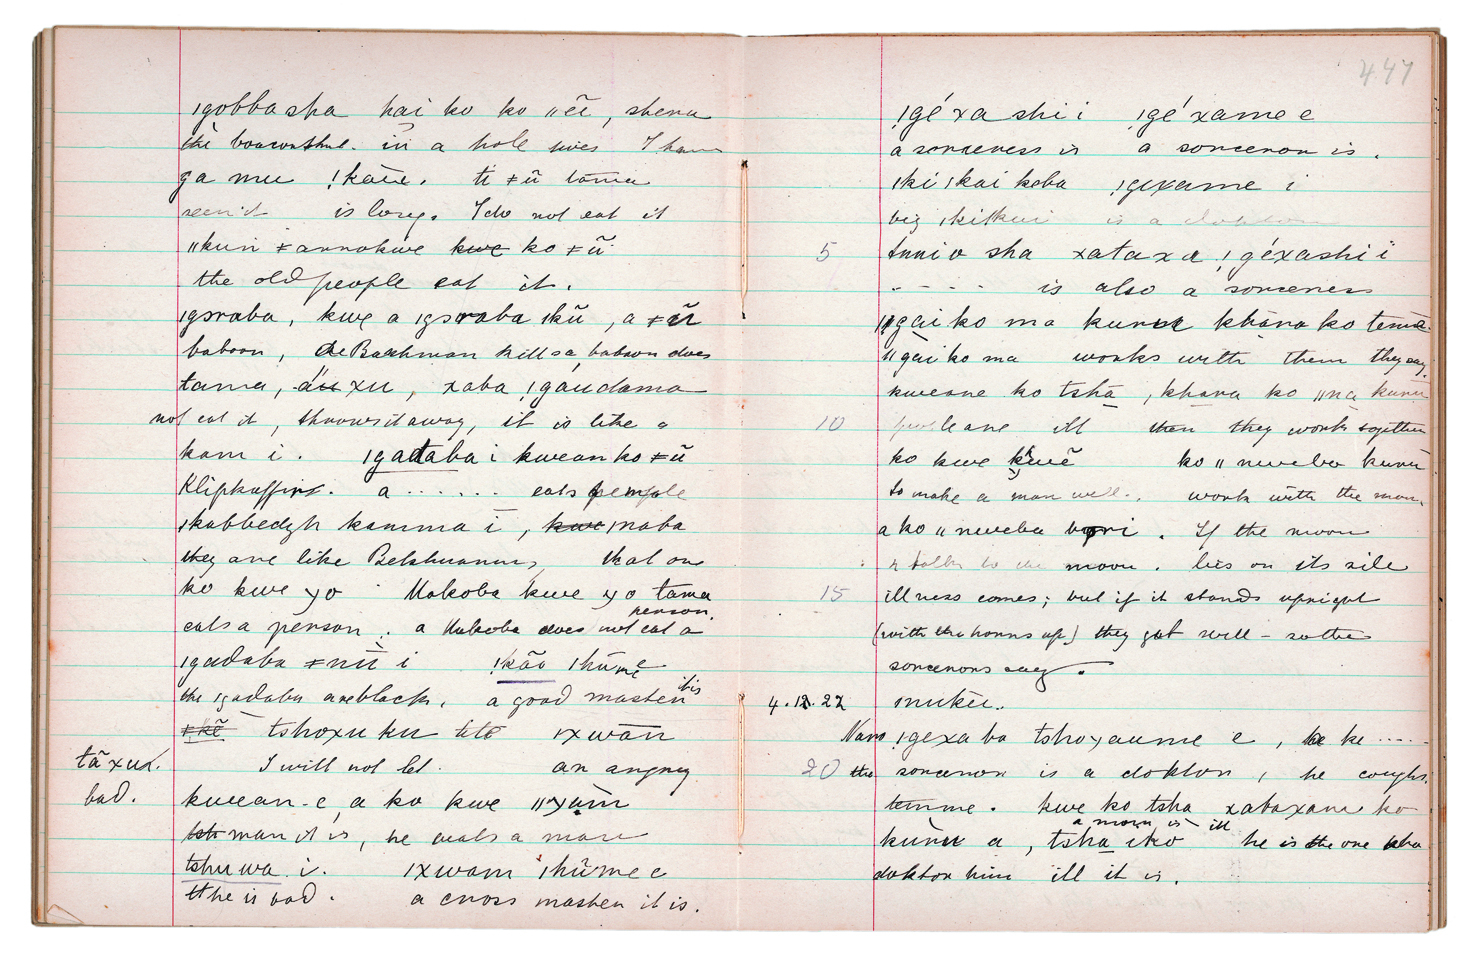 ǀgobbasha hai ko ko ǁĕĩ, shena
the boaconstrict. in a hole lives I have
ga mu ǃkāũe. ti ǂũ tāma
seen it is long. I do not eat it
ǁkuri ǂannokwe kwe ko ǂũ
the old people eat it.
ǀgoraba, kwe a ǀgoraba ǀkũ, a ǂũ
baboon, de Bushman kills a baboon does
tama, xu, xaba ǃgáudama
not eat it, throws it away, it is like a
kam i. ǀgadaba i kwean ko ǂũ
Klipkaffirs. a ...... eats people
ǀkabbedyh kamma i, kwe ǀnaba
they are like Betshuanas, that one
ko kwe yo Makoba kwe yo tama
eats a person. a Makoba does not eat a person.
ǀgadaba ǂnũ i ǃkão ǀhũme e
the ǀgadaba are black, a good master it is
ǂkẽ tshoxu ku tete ǀxwãn
I will not let. an angry
tãxu.
bad.
kwean e, a ko kwe ǁxam
man it is, he eats a man
tshuwa i. ǀxwam ǀhũme e
he is bad. a cross master it is.
447
ǃgéxashi i ǃgéxame e
a sorceress is a sorceror is.
ǀki ǀkai koba ǃgexame i
big is a doktor
5 sha xataxa ǃgéxashi i
- - - - is also a sorceress
ǁgāi ko ma kuru khāra ko tema
ǁgāi ko ma works with them they say.
kweane ko tshā, khara ko ǁna kuru
10 people are ill then they work together
ko kwe kwẽ ko ǁnweba kuru
to make a man well. work with the moon.
a ko ǁnweba bori. If the moon
talks to the moon. lies on its side
15 illness comes; but if it stands upright
(with the horns up) they get well - so the
sorcerors say.
4.12.22 ǀnukeu.
Naro ǃgexaba tshoyaume e, ke .....
20 the sorceror is a doktor, he coughs.
temme. kwe ko tsha xabaxam ko
a man is ill
kuru a, tsha iko he is the one who
doktor him ill it is.